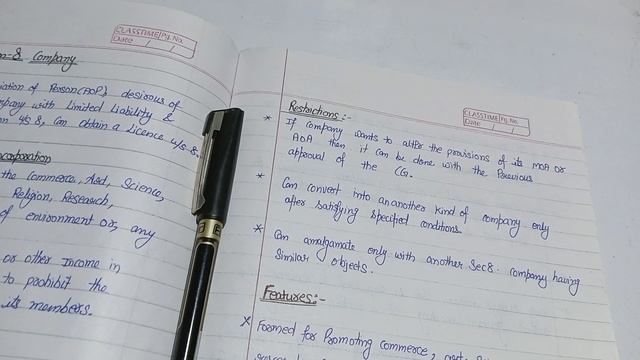 CLASSTIME Pg. No.
Date / /
n-8 Company
iation of Person(AOP) desirous of
mpany with Limited Liability &
n 4S 8, Can obtain a Licence u/s-8.
ncorporation
the Commerce, Art, Science,
Religion, Research,
of environment or, any
or other Income in
to prohibit the
its members.
CLASSTIME Pg. No.
Date / /
Restrictions :-
* If company wants to alter the provisions of its MOA or
AOA then it can be done with the Previous
approval of the CG.
* Can convert into ananother kind of company only
after satisfying specified conditions.
* Can amalgamate only with another Sec8. company having
similar objects.
Features:-
x Formed for Promoting commerce,